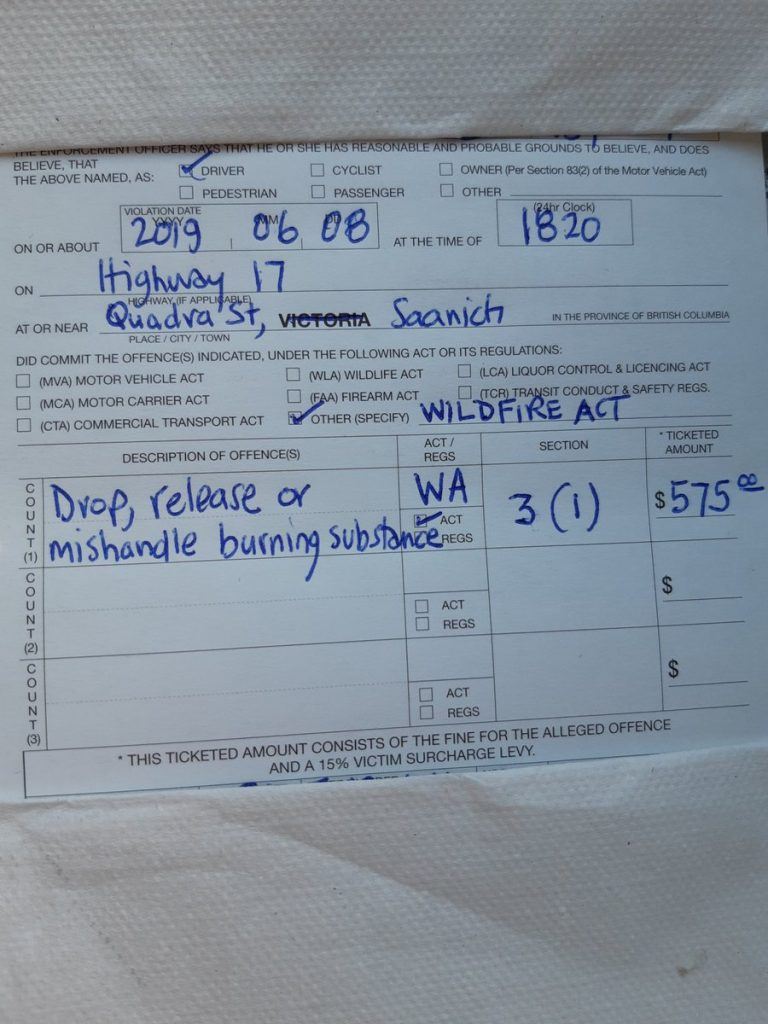 THE ENFORCEMENT OFFICER SAYS THAT HE OR SHE HAS REASONABLE AND PROBABLE GROUNDS TO BELIEVE, AND DOES
BELIEVE, THAT
THE ABOVE NAMED, AS: DRIVER CYCLIST OWNER (Per Section 83(2) of the Motor Vehicle Act)
PEDESTRIAN PASSENGER OTHER
VIOLATION DATE (24hr Clock)
YYYY MM DD
ON OR ABOUT 2019 06 08 AT THE TIME OF 1820
ON Highway 17
HIGHWAY (IF APPLICABLE)
AT OR NEAR Quadra St, VICTORIA Saanich IN THE PROVINCE OF BRITISH COLUMBIA
PLACE / CITY / TOWN
DID COMMIT THE OFFENCE(S) INDICATED, UNDER THE FOLLOWING ACT OR ITS REGULATIONS:
(MVA) MOTOR VEHICLE ACT (WLA) WILDLIFE ACT (LCA) LIQUOR CONTROL & LICENCING ACT
(MCA) MOTOR CARRIER ACT (FAA) FIREARM ACT (TCR) TRANSIT CONDUCT & SAFETY REGS.
(CTA) COMMERCIAL TRANSPORT ACT OTHER (SPECIFY) WILDFIRE ACT
DESCRIPTION OF OFFENCE(S) ACT / REGS SECTION * TICKETED AMOUNT
COUNT (1) Drop, release or WA 3 (1) $575.00
mishandle burning substance ACT
REGS
COUNT (2) $
ACT
REGS
COUNT (3) $
ACT
REGS
* THIS TICKETED AMOUNT CONSISTS OF THE FINE FOR THE ALLEGED OFFENCE
AND A 15% VICTIM SURCHARGE LEVY.